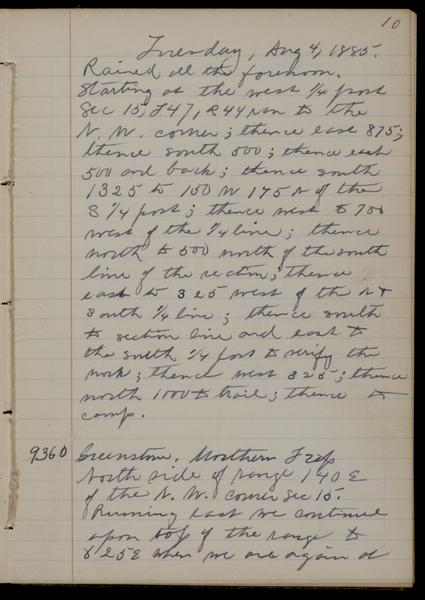 10
Tuesday, Aug 4, 1885.
Rained all the forenoon.
Starting at the west 1/4 post
Sec 15, T47, R44 run to the
N. W. corner; thence east 875;
thence south 500; thence east
500 and back; thence south
1325 to 150 W 175 N of the
S 1/4 post; thence west to 700
west of the 1/4 line; thence
north to 500 north of the south
line of the section; thence
east to 325 west of the N &
South 1/4 line; thence south
to section line and east to
the south 1/4 post to verify the
work; thence west 325; thence
north 1000 to trail; thence to
camp.
9360 Greenstone. Northern Trap
North side of range 140 E
of the N. W. corner Sec 15.
Running east we continued
upon top of the range to
625 E when we are again at